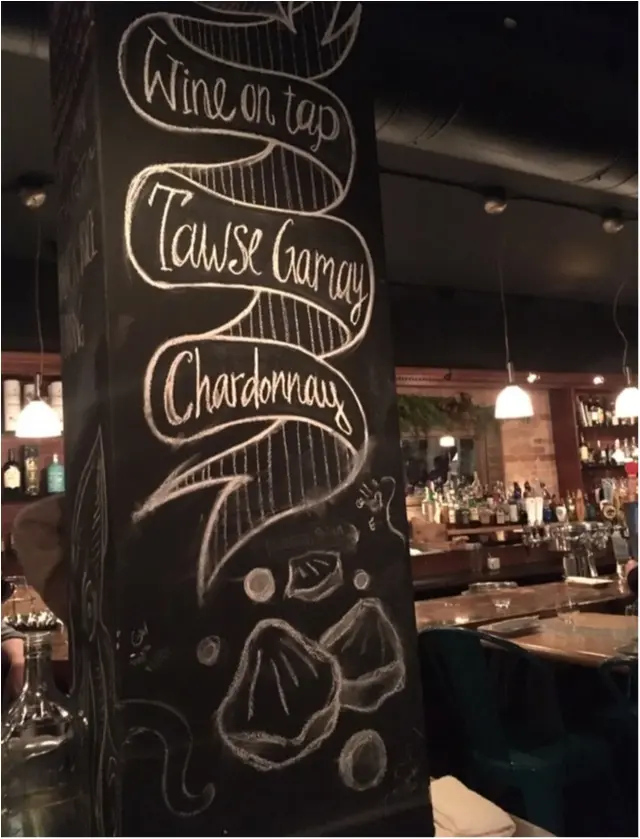 Wine on tap
Tawse Gamay
Chardonnay